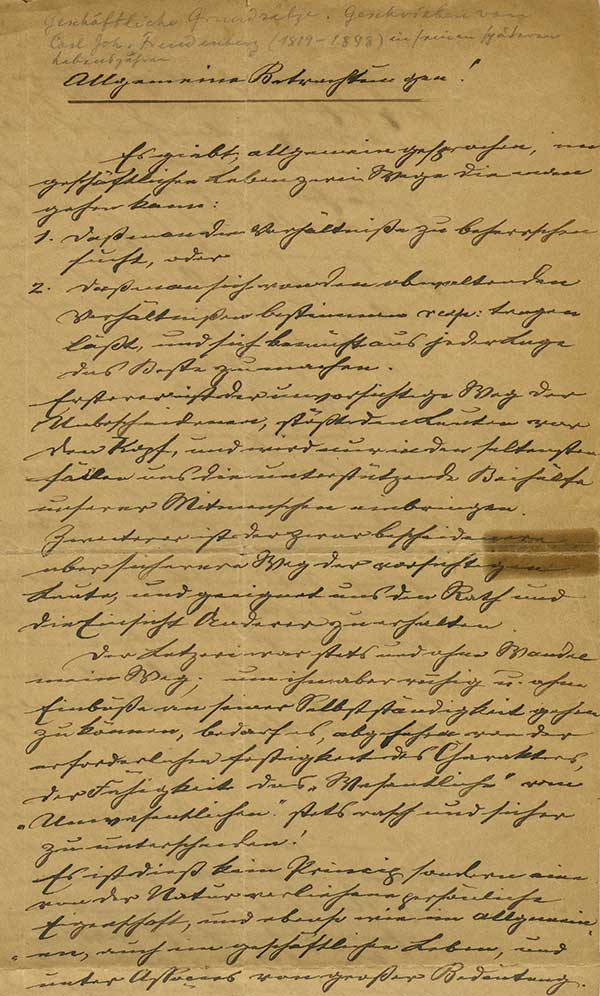 Geschäftliche Grundsätze. Geschrieben von
Carl Joh. Freudenberg (1819-1898) in seinen späteren
Lebensjahren
Allgemeine Betrachtungen!
Es giebt, allgemein gesprochen, im
geschäftlichen Leben zwei Wege die man
gehen kann:
1. Daß man den Verhältniße zu beherrschen
sucht, oder
2. Daß man sich von den obwaltenden
Verhältnißen bestimmen resp: tragen
läßt, und sich bemüht aus jeder Lage
das Beste zu machen.
Ersterer ist der unvorsichtige Weg der
Unbescheidenen, stößt den Leuten vor
den Kopf, und wird nur in den seltensten
Fällen uns die unterstützende Beihülfe
unserer Mitmenschen einbringen.
Zweiterer ist der zwar bescheidenere
aber sicherere Weg der vorsichtigen
Leute, und geeignet uns den Rath und
die Einsicht Anderer zu erhalten
Der Letztere war stets und ohne Wandel
mein Weg; um ihn aber richtig u. ohne
Einbuße an seiner Selbstständigkeit gehen
zu können, bedarf es, abgesehen von der
erforderlichen Festigkeit des Charakters,
der Fähigkeit das „Wesentliche" vom
„Unwesentlichen" stets rasch und sicher
zu unterscheiden!
Es ist dieß kein Princip sondern eine
von der Natur verliehene persönliche
Eigenschaft, und ebenso wie im allgemein-
en, auch im geschäftlichen Leben, und
unter Associes von großer Bedeutung.